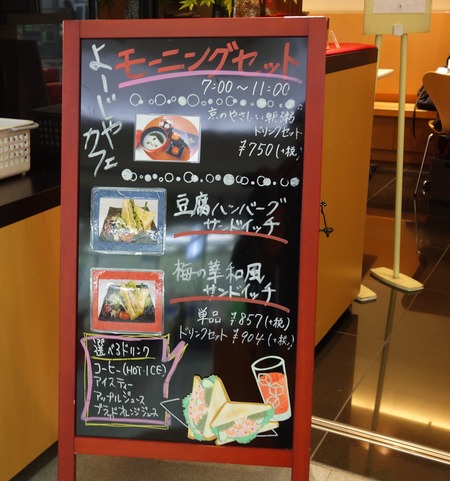 よーじやカフェ
モーニングセット
7:00〜11:00
京のやさしい朝粥
ドリンクセット
¥750(+税)
豆腐ハンバーグ
サンドイッチ
梅の華和風
サンドイッチ
単品 ¥857(+税)
ドリンクセット ¥904(+税)
選べるドリンク
コーヒー(HOT・ICE)
アイスティー
アップルジュース
ブラッドオレンジジュース